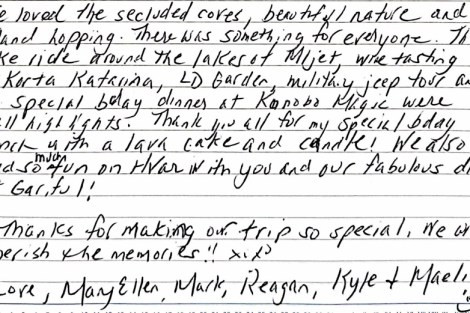 loved the secluded coves, beautiful nature and
land hopping. There was something for everyone. Th
ke ride around the lakes of Mljet, wine tasting
Korta Katarina, LD Garden, military jeep tour an
special bday dinner at Konoba Mugic were
all highlights. Thank you all for my special bday
with a lava cake and candle! We also
had so much fun on Hvar with you and our fabulous di
Gariful!
Thanks for making our trip so special. We
cherish the memories!! xoxo
Love, MaryEllen, Mark, Reagan, Kyle + Maeli